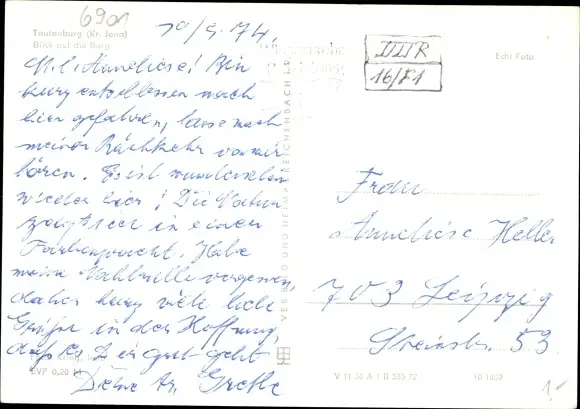 6901
Tautenburg (Kr. Jena)
Blick auf die Burg
10/5.74.
M. l. Anneliese! Bin
kurz entschlossen nach
hier gefahren, lasse nach
meiner Rückkehr von mir
hören. Es ist wunderschön
wieder hier! Die Natur
zeigt sich in einer
Farbenpracht. Habe
meine Nahbrille vergessen,
daher kurz viele liebe
Grüße in der Hoffnung,
daß es Dir gut geht
Deine Grete
EVP 0,20 M
VEB BILD UND HEIMAT REICHENBACH I. V.
DDR
16/81
Echt Foto
Frau
Anneliese Heller
703 Leipzig
Steinstr. 53
V 11 50 A 1 B 585/72
1,-